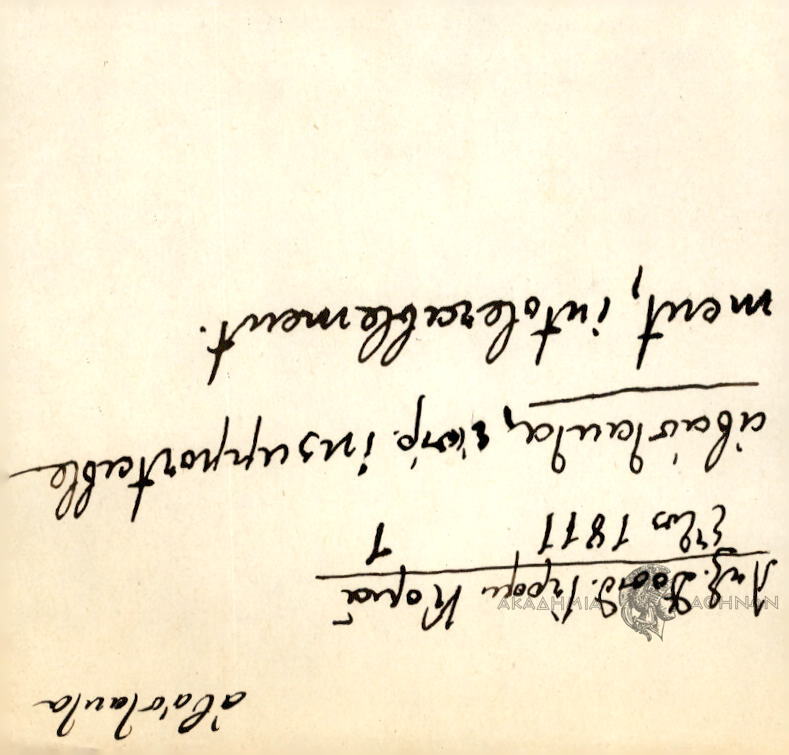 ἀβάσταχτα
Λεξ. Γρομ. Κορᾶ
ἔτος 1811 1
ἀβάσταχτα, ἐπίρ. insupportable
ment, intolerablement.
ΑΚΑΔΗΜΙΑ ΑΘΗΝΩΝ